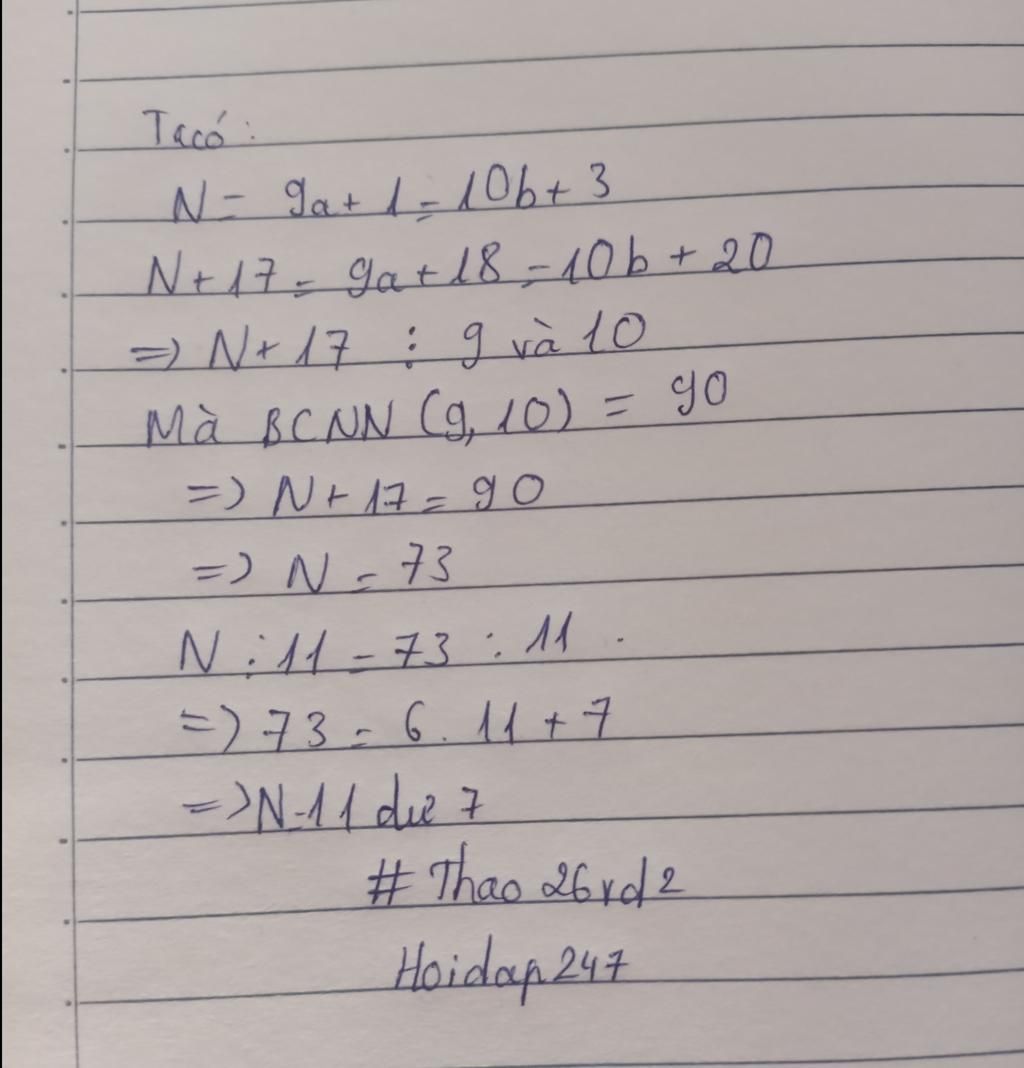 Ta có:
N = 9a + 1 = 10b + 3
N + 17 = 9a + 18 = 10b + 20
=> N + 17 ⋮ 9 và 10
Mà BCNN (9, 10) = 90
=> N + 17 = 90
=> N = 73
N : 11 = 73 : 11.
=> 73 = 6. 11 + 7
=> N - 11 dư 7
# Thao 26rd2
Hoidap247